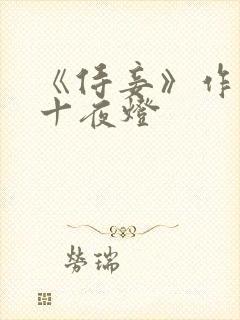 《侍妾》作
十夜燈
勞瑞